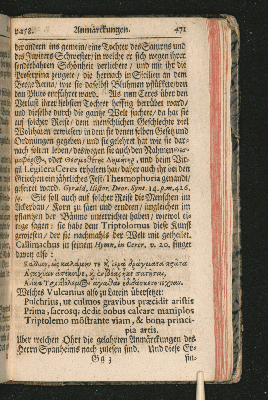 v. 458. Anmärckungen. 471
berandern ins gemein / eine Tochter des Saturns und
des Jupiters Schwester / in welche er sich wegen ihrer
sonderbahren Schönheit verliebete / und mit ihr die
Proserpina zeugete / die hernach in Sicilien an dem
Berge Aetna / wie sie daselbst Bluhmen pflückete / von
den Pluto entführet ward. Als nun Ceres über den
Verlust ihrer liebsten Tochter hefftig betrübet ward /
und dieselbe durch die gantze Welt suchete / da hat sie
auf solcher Reise / dem menschlichen Geschlechte viel
Wolthaten erwiesen / in dem sie denen selben Gesetz und
Ordnungen gegeben / und sie gelehret hat wie sie dar-
nach solten leben / deswegen sie auch den Nahmen
oder und beim Vir-
gil Legifera Ceres erhalten hat / daher auch ihr bei den
Griechen ein jährliches Fest Thesmophoria genandt /
gefeiret ward. Gyrald. Histor. Deor. Synt. 14. p.m. 426.
Sie soll auch auf solcher Reise die Menschen im
Ackerbau / Korn zu säen und erndten / imgleichen im
pflantzen der Bäume unterrichtet haben / wiewol ei-
nige sagen: sie habe dem Triptolemus diese Kunst
gewiesen / der sie nachmahls der Welt mit getheilet.
Callimachus in seinem Hymn. in Cerer. v. 20. singet
davon also:
Welches Vulcanius also zu Latein übersetzet:
Pulchrius, ut culmos gravibus præcidit aristis
Prima, sacrosq; dedit bobus calcare maniplos
Triptolemo mõstrante viam, & bona princi-
pia artis.
Uber welchen Ohrt die gelahrten Anmärckungen des
Herrn Spanheims nach zulesen sind. Und diese Er-
Gg 3 fin-